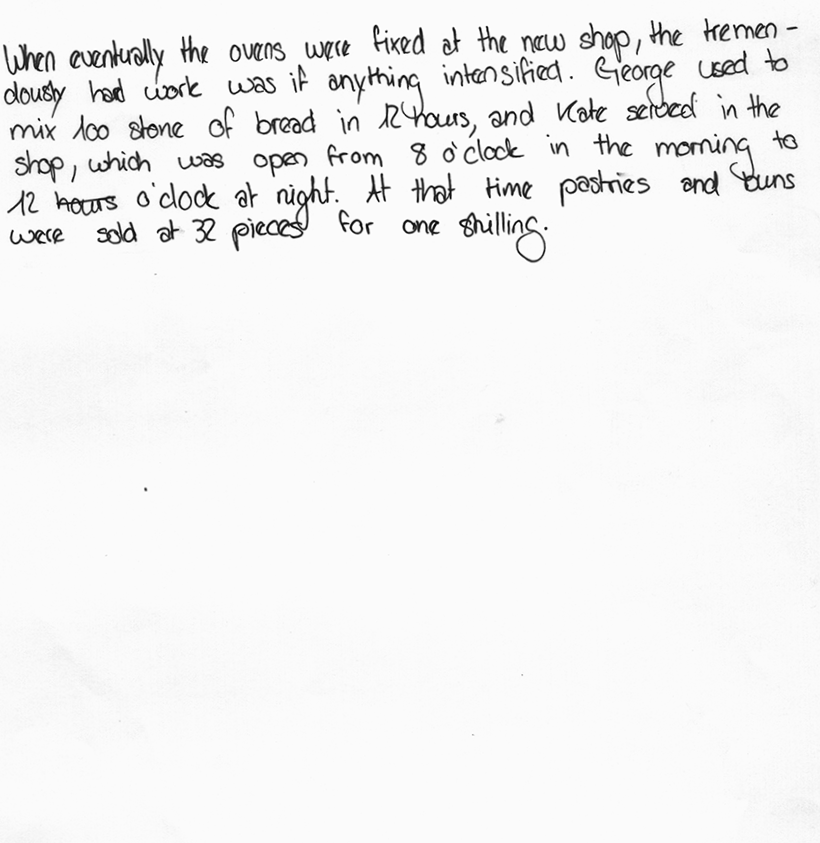 When eventually the ovens were fixed at the new shop, the tremen-
dously had work was if anything intensified. George used to
mix 100 stone of bread in 12 hours, and Kate served in the
shop, which was open from 8 o'clock in the morning to
12 hours o'clock at night. At that time pastries and buns
were sold at 32 pieces for one shilling.